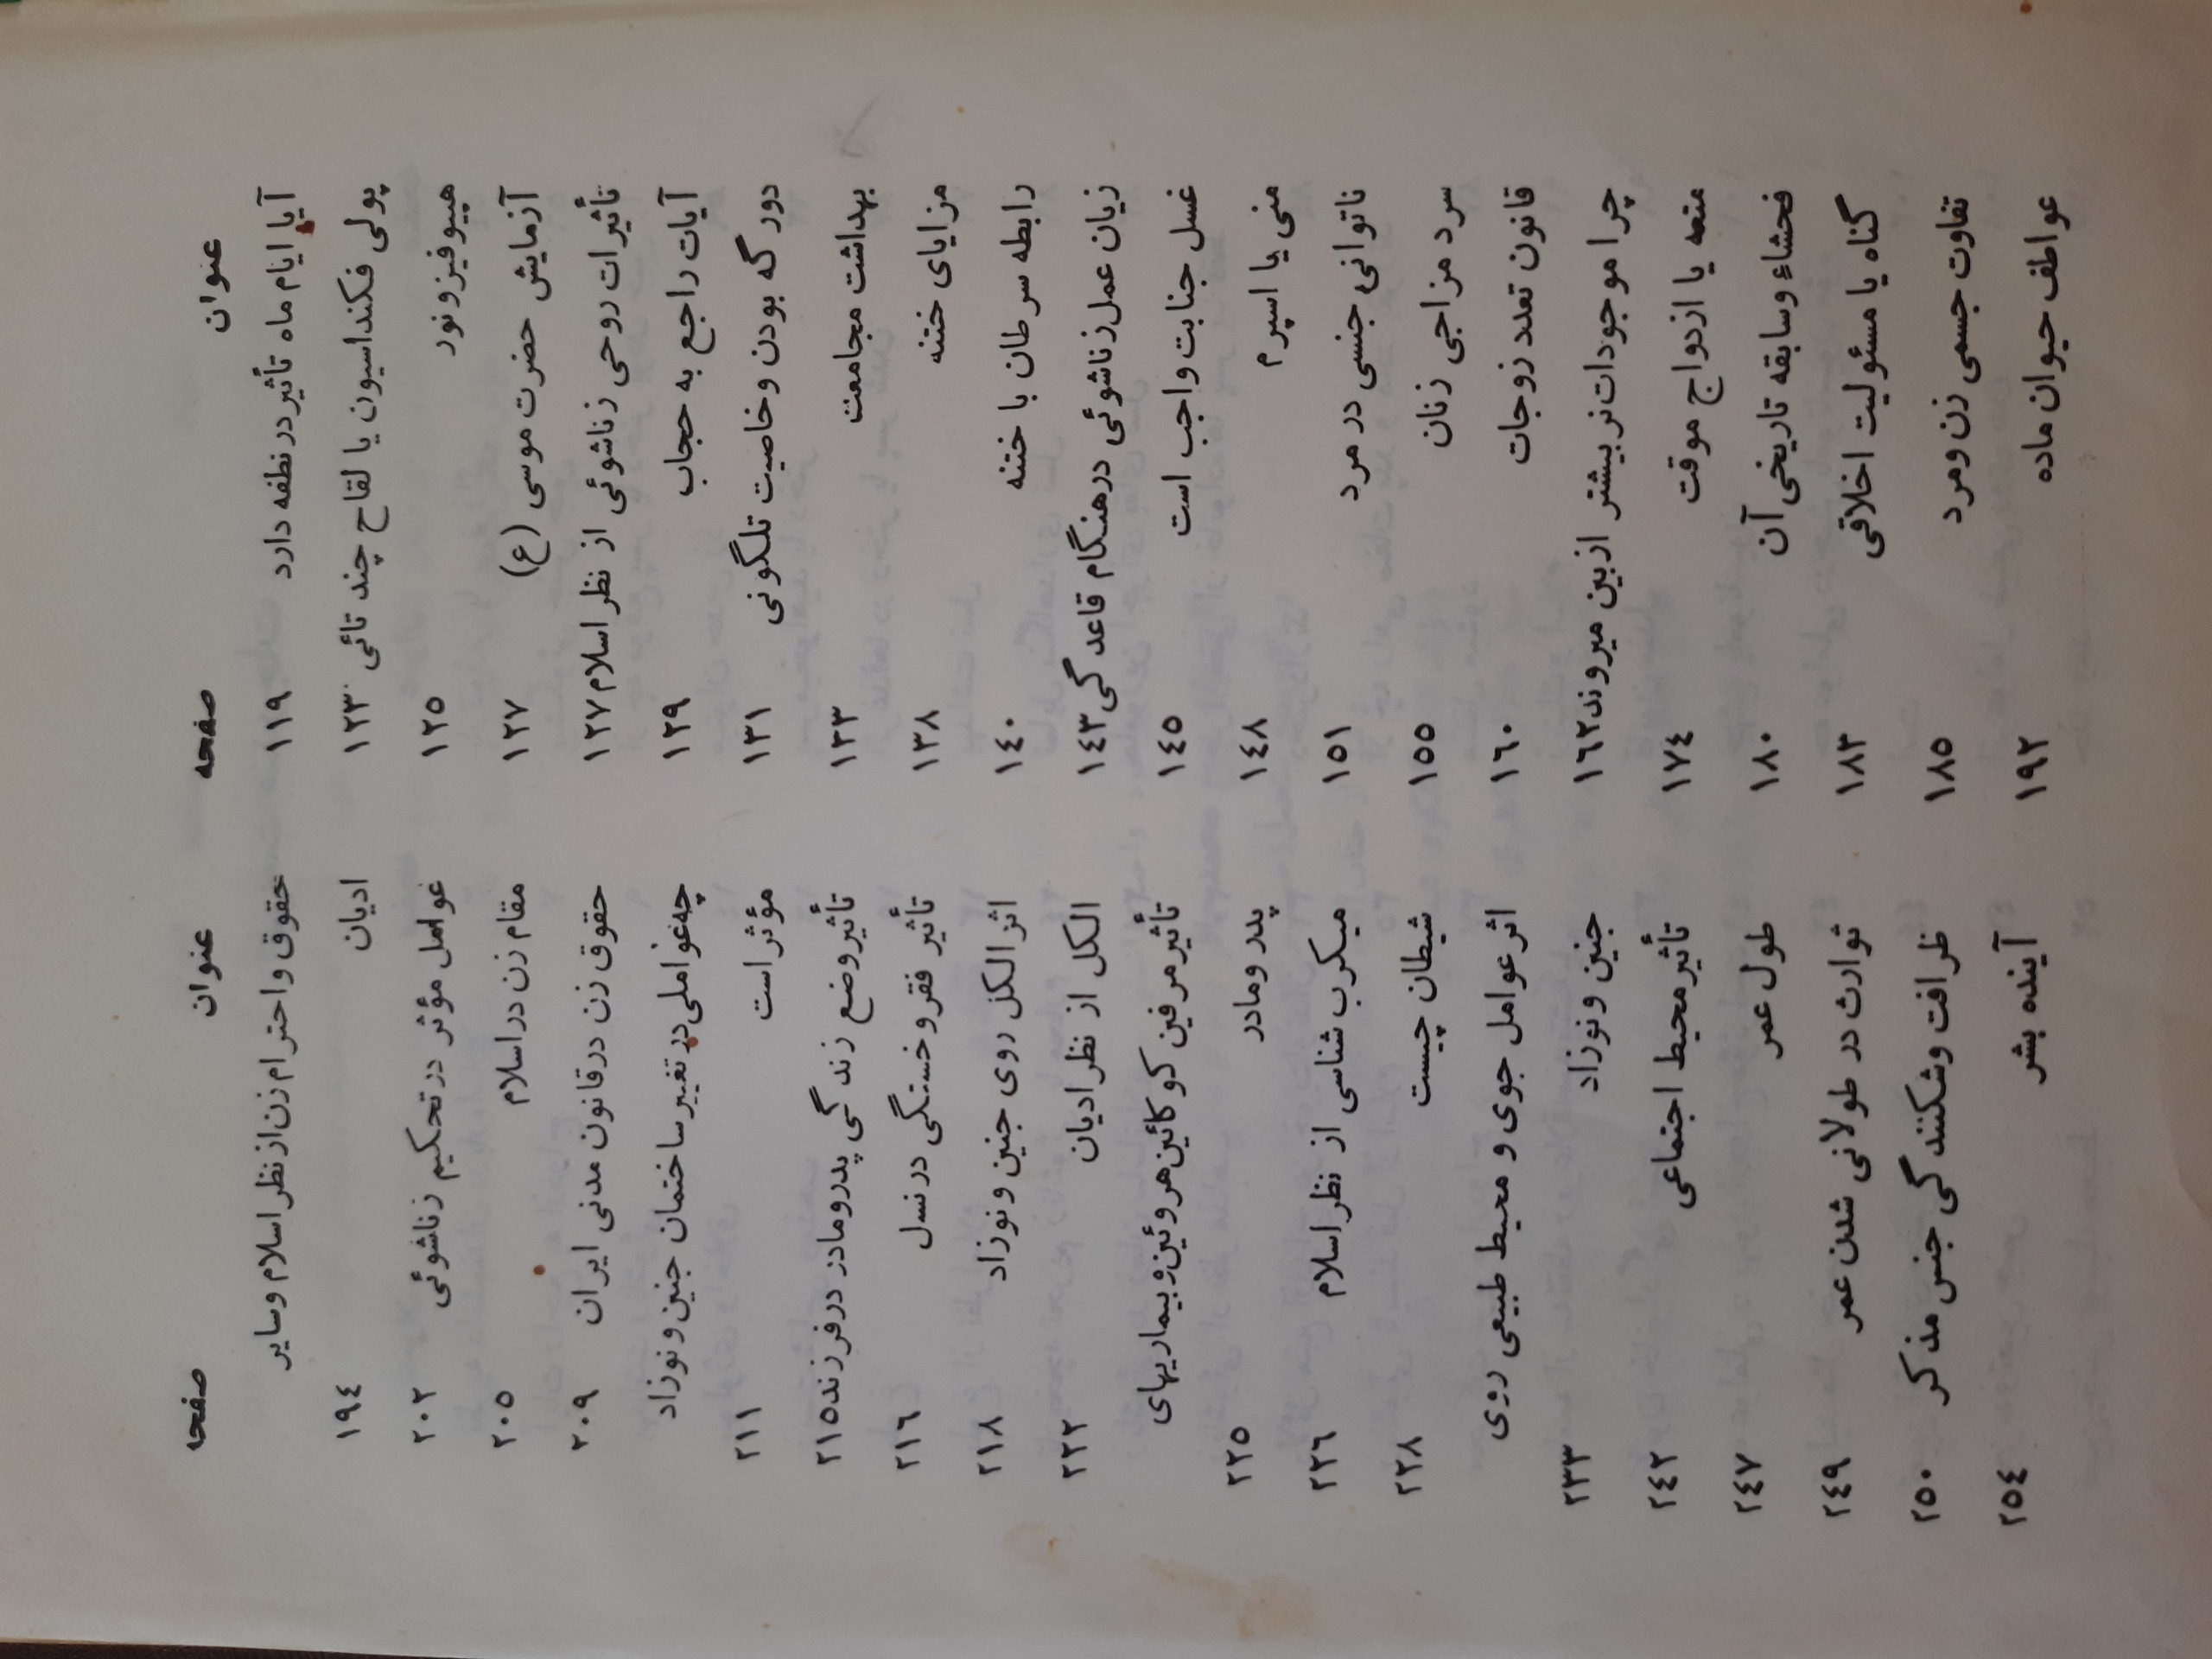 عنوان صفحه
آیا ایام ماه تأثیر در نطفه دارد ۱۱۹
پولی فکنداسیون یا لقاح چند تائی ۱۲۳
هیپوفیز و نود ۱۲۵
آزمایش حضرت موسی (ع) ۱۲۷
تأثیرات روحی زناشوئی از نظر اسلام ۱۲۷
آیات راجع به حجاب ۱۲۹
دور گه بودن و خاصیت تلگونی ۱۳۱
بهداشت مجامعت ۱۳۳
مزایای ختنه ۱۳۸
رابطه سرطان با ختنه ۱٤۰
زیان عمل زناشوئی در هنگام قاعد گی ۱٤۳
غسل جنابت واجب است ۱٤۵
منی یا اسپرم ۱٤۸
ناتوانی جنسی در مرد ۱۵۱
سرد مزاجی زنان ۱۵۵
قانون تعدد زوجات ۱۶۰
چرا موجودات نر بیشتر از بین میروند ۱۶۲
متعه یا ازدواج موقت ۱۷٤
فحشاء و سابقه تاریخی آن ۱۸۰
گناه یا مسئولیت اخلاقی ۱۸۳
تفاوت جسمی زن و مرد ۱۸۵
عواطف حیوان ماده ۱۹۲
عنوان صفحه
حقوق و احترام زن از نظر اسلام و سایر
ادیان ۱۹٤
عوامل مؤثر در تحکیم زناشوئی ۲۰۲
مقام زن در اسلام ۲۰۵
حقوق زن در قانون مدنی ایران ۲۰۹
چه عواملی در تغییر ساختمان جنین و نوزاد
مؤثر است ۲۱۱
تأثیر وضع زند گی پدر و مادر در فرزند ۲۱۵
تأثیر فقر و خستگی در نسل ۲۱۶
اثر الکل روی جنین و نوزاد ۲۱۸
الکل از نظر ادیان ۲۲۲
تأثیر مرفین کوکائین هروئین و بیماریهای
پدر و مادر ۲۲۵
میکرب شناسی از نظر اسلام ۲۲۶
شیطان چیست ۲۲۸
اثر عوامل جوی و محیط طبیعی روی
جنین و نوزاد ۲۳۳
تأثیر محیط اجتماعی ۲٤۲
طول عمر ۲٤۷
توارث در طولانی شدن عمر ۲٤۹
ظرافت و شکنند گی جنس مذکر ۲۵۰
آینده بشر ۲۵٤